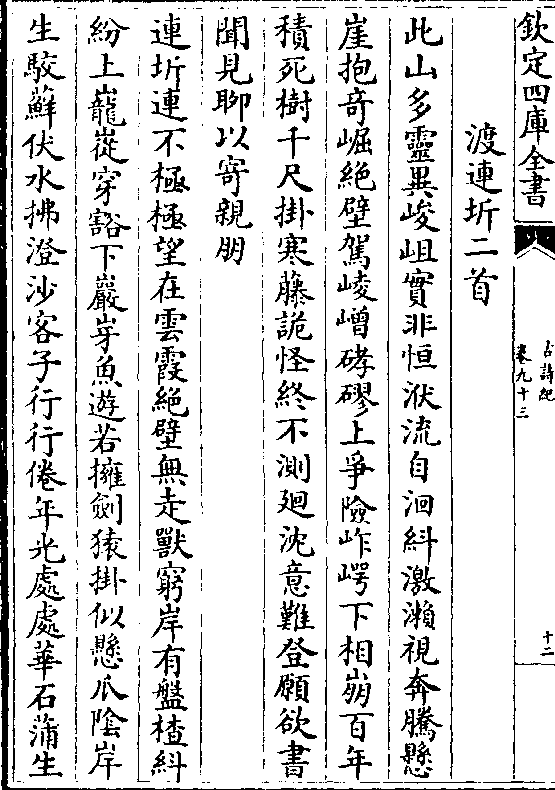 欽定四庫全書
古詩紀
卷九十三
十二
渡連圻二首
此山多靈異峻岨實非恒洑流自洄糾激瀨視奔騰懸
崖抱奇崛絶壁駕崚嶒硣磟上爭險岞崿下相崩百年
積死樹千尺掛寒藤詭怪終不測廻沈意難登願欲書
聞見聊以寄親朋
連圻連不極極望在雲霞絶壁無走獸窮岸有盤楂糾
紛上巃嵸穿豁下巖㟧魚遊若擁劍猿掛似懸瓜陰岸
生駮蘚伏水拂澄沙客子行行倦年光處處華石蒲生